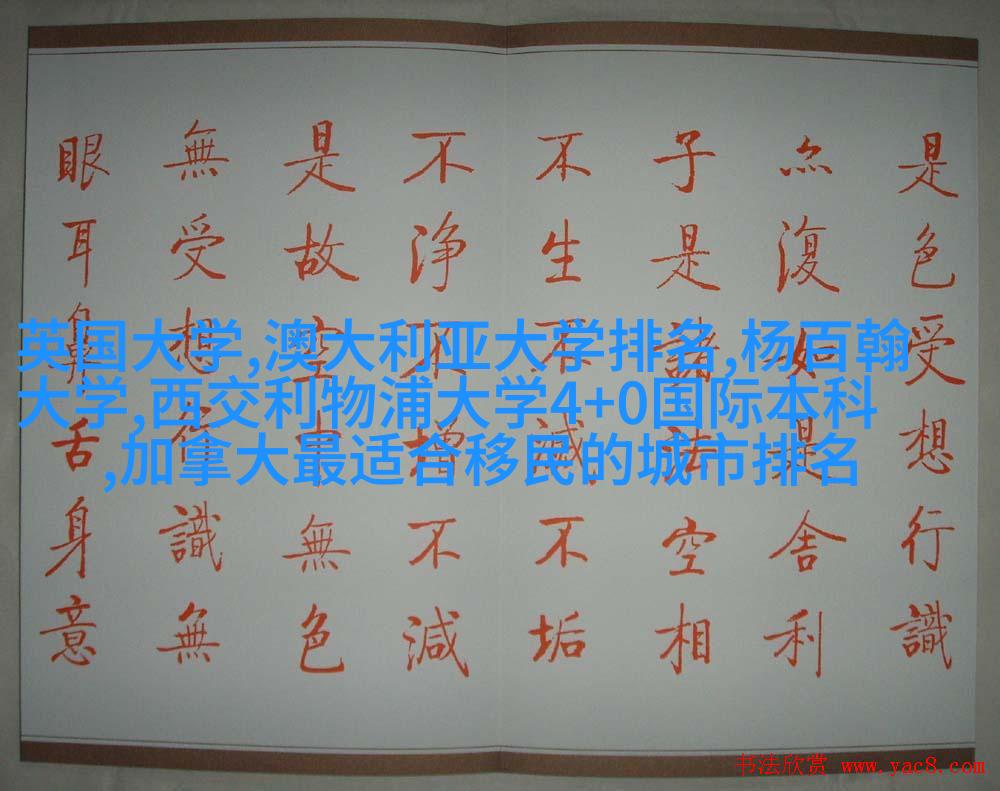 是色受想行識
亦復如是舍利
子是諸法空相
不生不滅不垢
不淨不增不減
是故空中無色
無受想行識無
眼耳鼻舌身意
英国大学,澳大利亚大学排名,杨百翰
大学,西交利物浦大学4+0国际本科
,加拿大最适合移民的城市排名
书法欣赏 www.yac8.com